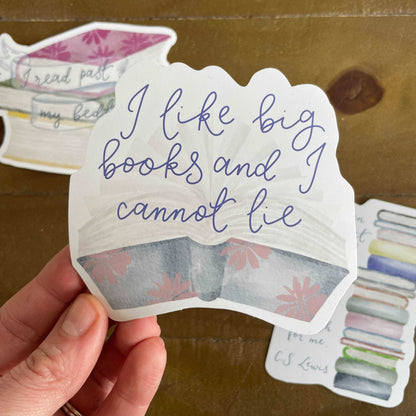 I read past
my bed
I like big
books and I
cannot lie
for me
C.S. Lewis